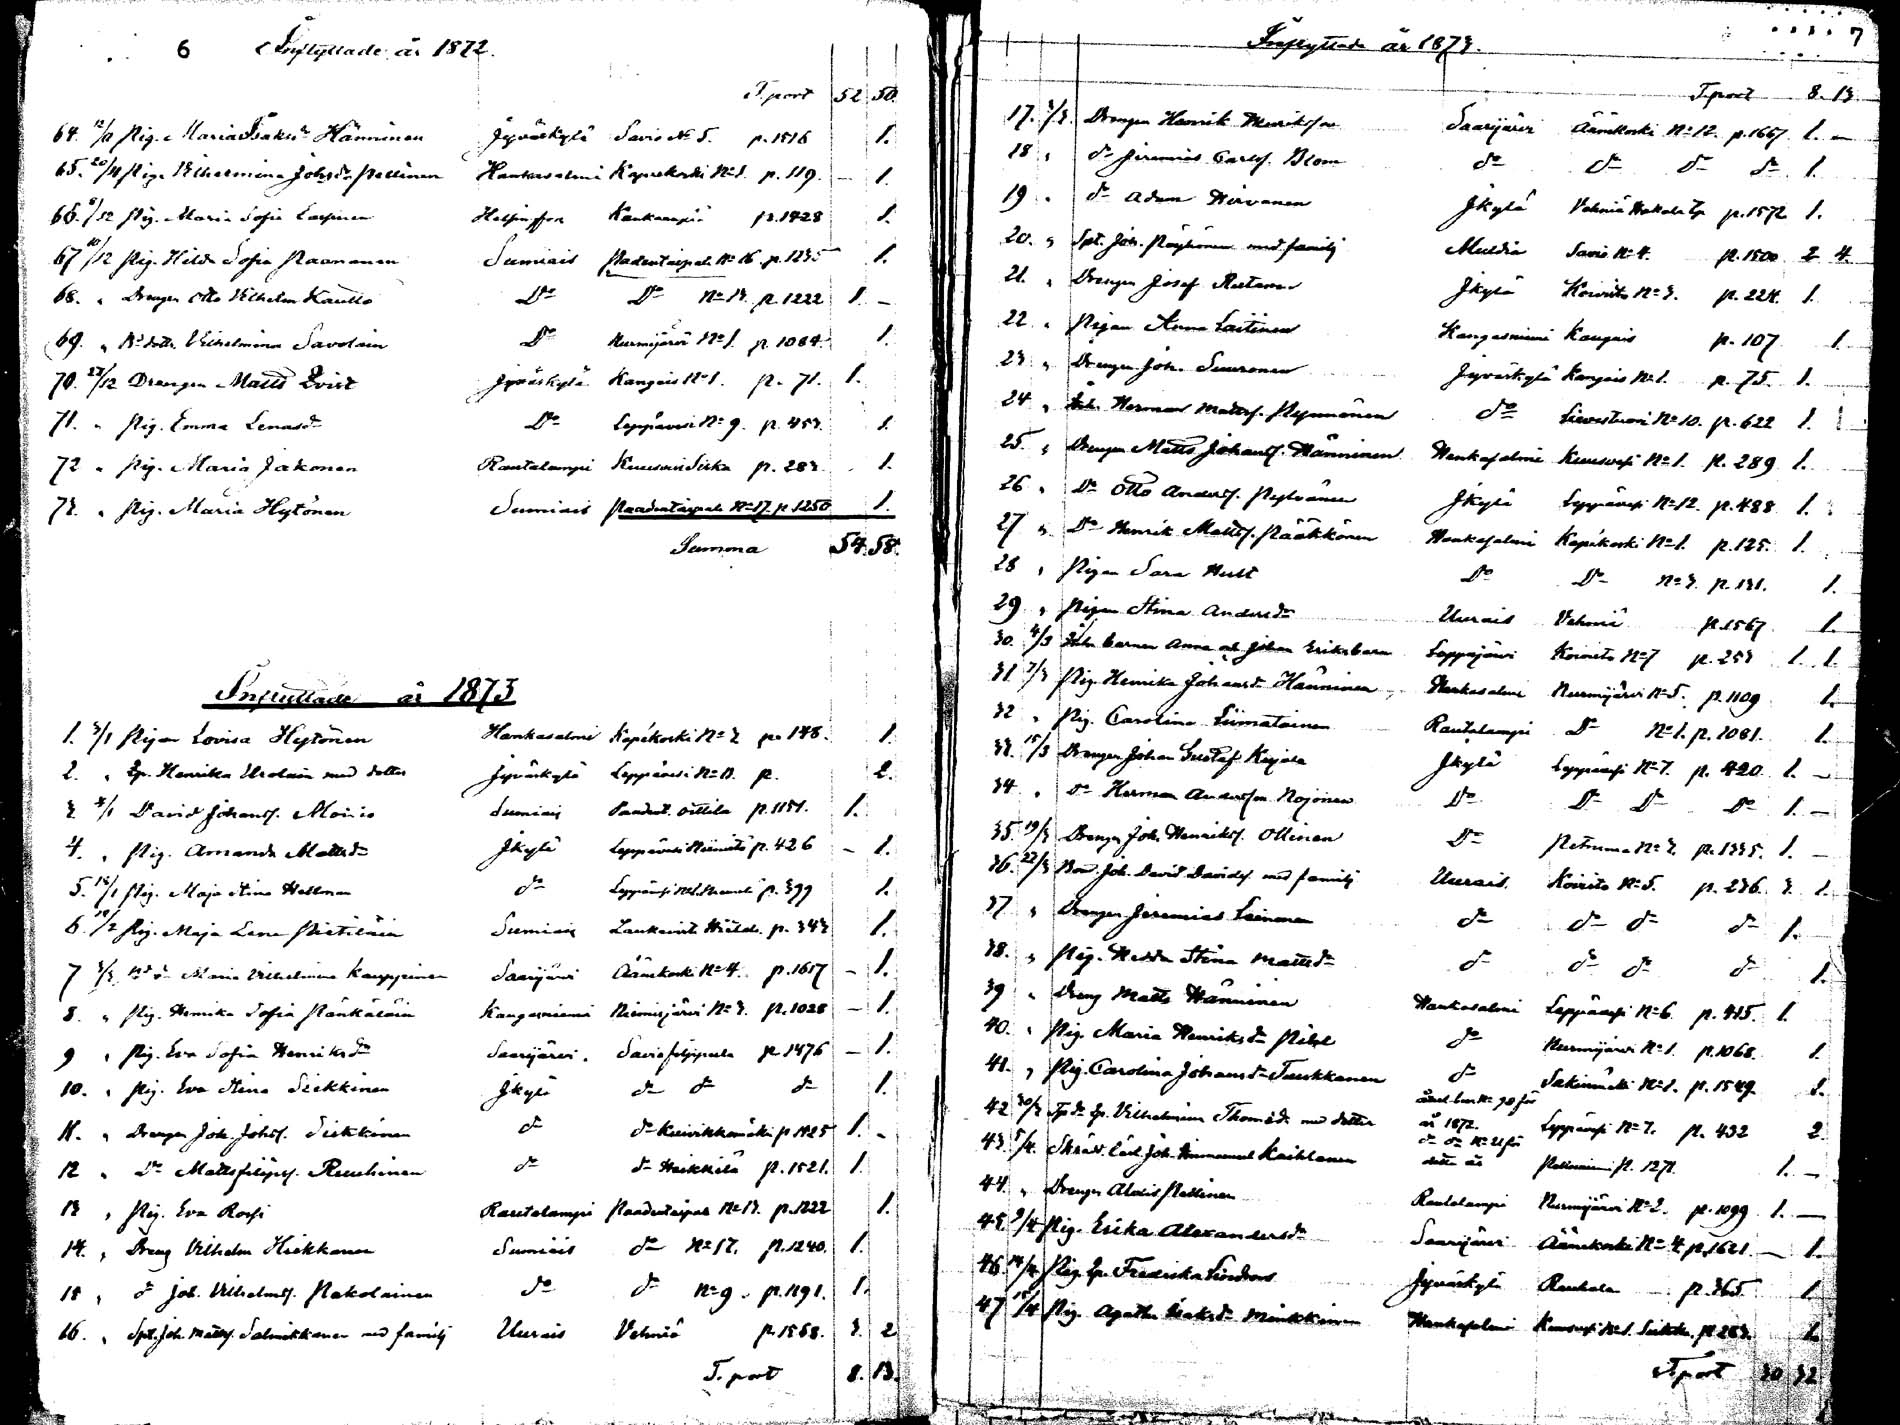 6 Inflyttade år 1872.
T.port 52 50
64. 12/11 Pig. Maria Isaksdr Hänninen Jyväskylä Savio No 5. p. 1516 1.
65. 20/11 Pig. Wilhelmina Johsdr Pellinen Hankasalmi Kapeekoski No 1. p. 119. – 1.
66. 5/12 Pig. Maria Sofia Helsingfors p. 1428 1.
67 10/12 Pig. Hilda Sofia Paananen Sumiais Paadentaipale No 16. p. 1235 1.
68. " Drengen Otto Vilhelm Kautto Do Do No 13. p. 1222 1. –
69. " Vilhelmina Savolain Do Nurmijärvi No 1. p. 1084. 1.
70. 23/12 Drengen Matts Qvist Jyväskylä Kangais No 1. p. 71. 1.
71. " Pig. Emma Lenasdr Do Leppävesi No 9. p. 453. 1.
72 " Pig. Maria Jakonen Rautalampi Kuusvesi Sirka p. 283. 1.
73. " Pig. Maria Hytönen Sumiais Paadentaipale No 17. p. 1250 1.
Summa 54. 58.
Inflyttade år 1873
1. 3/1 Pigan Lovisa Hytönen Hankasalmi Kapékoski No 3 p. 148. 1.
2. " Henrika Urolain med dotter Jyväskylä Leppävesi No 11. p. 2.
3 4/1 David Johansf. Moisio Sumiais Paadent. Oittila p. 1151. 1.
4. " Pig. Amanda Mattsdr Jkylä Leppävesi Niinistö p. 426 – 1.
5. 15/1 Pig. Maja Stina Hellman do Leppävesi p. 399 1.
6. 19/2 Pig. Maja Lena Pietiläin Sumiais p. 343 1.
7 3/3 Maria Vilhelmina Kauppinen Saarijärvi Äänekoski No 4. p. 1617 – 1.
8. " Pig. Henrika Sofia Pänkäläin Kangasniemi Niemisjärvi No 3. p. 1028 – 1.
9 " Pig. Eva Sofia Henriksdr Saarijärvi. Savio filppula p. 1476 – 1.
10. " Pig. Eva Stina Siekkinen Jkylä do do do 1.
11. " Drengen Joh. Johsf. Siekkinen do do Kuivikkomäki p. 1425 1. –
12 " Do Matts filipsf. Ruuhinen do do Heikkilä p. 1521. 1.
13 " Pig. Eva Rossi Rautalampi Paadentaipale No 13. p. 1222 1.
14. " Dreng Vilhelm Hiekkanen Sumiais do No 17. p. 1240. 1.
15 " do Joh. Vilhelmsf. Pakolainen do do No 9. p. 1191. 1.
16. " Spt. Joh. Mattsf. Salmikkanen med familj Uurais Vehniä p. 1568. 3. 2
T. port 8. 13.
Inflyttade år 1873. 7
T.port 8. 13
17. 3/3. Drengen Henrik Henriksson Saarijärvi Äänekoski No 12. p. 1667 1. –
18 " do Jeremias Carlsf. Blom do do do do 1.
19 " do Adam Hirvonen Jkylä Vehniä Hakala Tp p. 1572 1.
20. " Spt. Joh. Pöyhönen med familj Multia Savio No 4. p. 1500 2 4.
21. " Drengen Josef Rutanen Jkylä Koivisto No 3. p. 224. 1.
22 " Pigan Anna Laitinen Kangasniemi Kangais p. 107 1.
23 " Drengen Joh. Suuronen Jyväskylä Kangais No 1. p. 75. 1.
24 " Herman Mattsf. Nynnänen do Lievestuori No 10. p. 622 1.
25. " Drengen Matts Johansf. Hänninen Hankasalmi Kuusvesi No 1. p. 289 1.
26 " Do Otto Andersf. Pylvänen Jkylä Leppävesi No 12. p. 488 1.
27 " Do Henrik Mattsf. Pääkkönen Hankasalmi Kapékoski No 1. p. 125. 1.
28 " Pigan Sara Hult Do Do No 3. p. 131. 1.
29 " Pigan Stina Andersdr Uurais Vehniä p. 1567 1.
30. 4/3 barnen Anna och Johan Eriksbarn Leppäjärvi Koivisto No 7 p. 253 1. 1.
31 7/3 Pig. Henrika Johansdr Hänninen Hankasalmi Nurmijärvi No 5. p. 1109 1.
32 " Pig. Carolina Liimatainen Rautalampi Do No 1. p. 1081. 1.
33. 15/3 Drengen Johan Gustaf Kijala Jkylä Leppävesi No 7. p. 420 1. –
34 " do Herman Andersson Nojonen Do Do Do Do 1. –
35. 19/3 Drengen Joh. Henriksf. Ollinen Do Petruma No 3. p. 1335. 1. –
36. 22/3 Bon. Joh. David Davidsf. med familj Uurais Koivisto No 5. p. 236. 3. 1.
37 " Drengen Jeremias Leinonen do do do do 1.
38. " Pig. Hedda Stina Mattsdr do do do do 1.
39 " Dreng Matts Hänninen Hankasalmi Leppävesi No 6. p. 415. 1.
40. " Pig. Maria Henriksdr Pihl do Nurmijärvi No 1. p. 1068. 1.
41. " Pig. Carolina Johansdr Tuukkanen do No 1. p. 1549. 1.
42 30/3 Vilhelmina Thomasdr med dotter No 70 för år 1872. Leppävesi No 7. p. 432 2.
43. 5/4. Joh. Immanuel Kaihlanen do do No 21 för detta år p. 1271. 1. –
44. " Drengen Alexis Pellinen Rautalampi Nurmijärvi No 2. p. 1099 1. –
45. 9/4 Pig. Erika Alexandersdr Saarijärvi Äänekoski No 4. p. 1621. – 1.
46. 14/4 Pig. Fredrika Jyväskylä Rauhala p. 365 1
47 15/4 Pig. Agatha Isaksdr Minkkinen Hankasalmi Kuusvesi No 1. p. 283. 1.
T.port 30 32